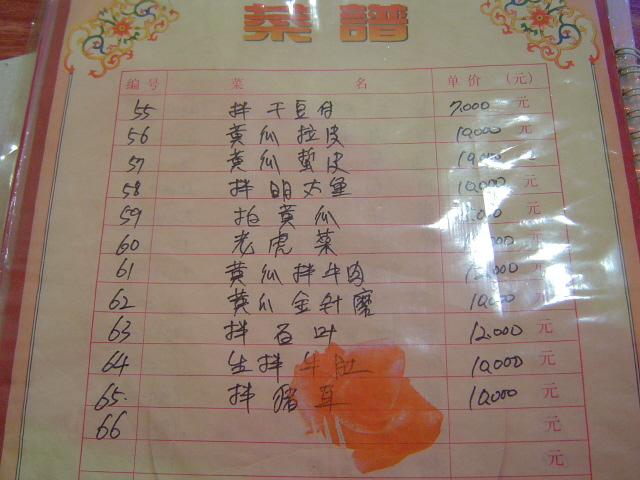 菜譜
编号 菜名 单价 (元)
55 拌干豆付 7,000 元
56 黄瓜拉皮 10,000 元
57 黄瓜蜇皮 元
58 拌明太鱼 10,000 元
59 拍黄瓜 元
60 老虎菜 元
61 黄瓜拌牛肉 元
62 黄瓜金针磨 10,000 元
63 拌百叶 12,000 元
64 生拌牛肚 10,000 元
65. 拌猪耳 10,000 元
66 元
元